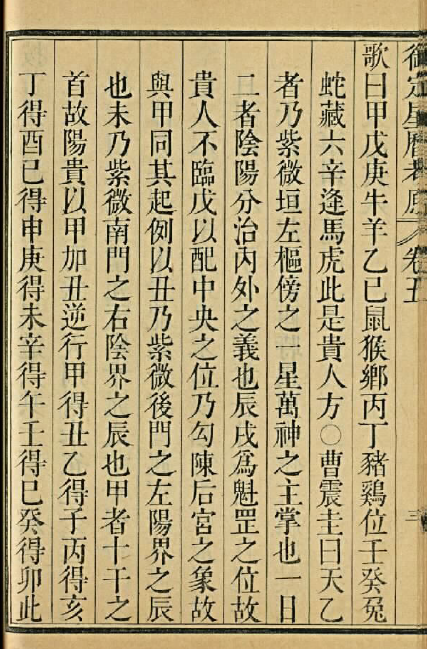 御定星曆考原 卷五
三
歌曰甲戊庚牛羊乙巳鼠猴鄉丙丁豬鷄位壬癸兔
蛇藏六辛逢馬虎此是貴人方○曹震圭曰天乙
者乃紫微垣左樞傍之一星萬神之主掌也一日
二者陰陽分治內外之義也辰戌爲魁罡之位故
貴人不臨戊以配中央之位乃勾陳后宮之象故
與甲同其起例以丑乃紫微後門之左陽界之辰
也未乃紫微南門之右陰界之辰也甲者十干之
首故陽貴以甲加丑逆行甲得丑乙得子丙得亥
丁得酉巳得申庚得未辛得午壬得巳癸得卯此